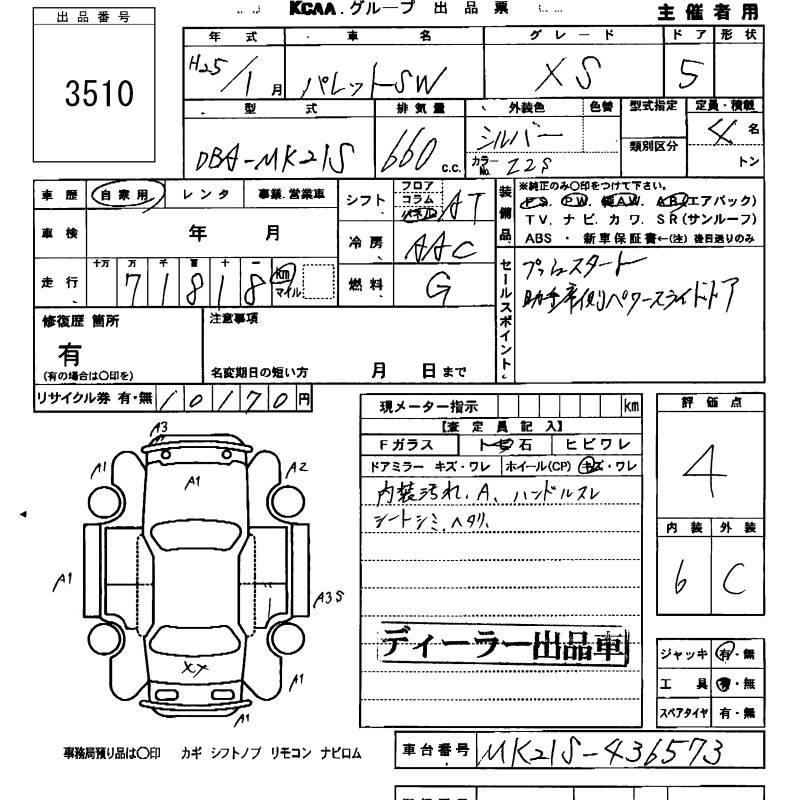 KCAA.グループ 出品票
主催者用
出品番号
3510
年式 車名 グレード ドア 形状
H25/1月 パレットSW XS 5
型式 排気量 外装色 色替 型式指定 定員・積載
DBA-MK21S 660 c.c. シルバー 類別区分 4名
カラーNo. Z2S トン
車歴 自家用 レンタ 事業.営業車
シフト フロア コラム パネル AT
車検 年 月
冷房 AAC
走行 十万 万 千 百 十 一 km マイル
71818
燃料 G
装備品
※純正のみ○印をつけて下さい。
P.S. P.W. 純A.W. A.B.(エアバック)
TV. ナビ. カワ. SR(サンルーフ)
ABS ・ 新車保証書←(注)後日送りのみ
セールスポイント
プッシュスタート
助手席側パワースライドドア
修復歴 箇所
有
(有の場合は○印を)
注意事項
名変期日の短い方 月 日まで
リサイクル券 有・無 10170円
現メーター指示 km
【査定員記入】
Fガラス トビ石 ヒビワレ
ドアミラー キズ・ワレ ホイール(CP) キズ・ワレ
内装汚れ.A、ハンドルスレ
シートシミ.ヘタリ.
ディーラー出品車
評価点
4
内装 外装
6 C
A3
A1 A1 A2
A1 A3S
XY
A1
A1
ジャッキ 有・無
工具 有・無
スペアタイヤ 有・無
事務局預り品は○印 カギ シフトノブ リモコン ナビロム
車台番号 MK21S-436573